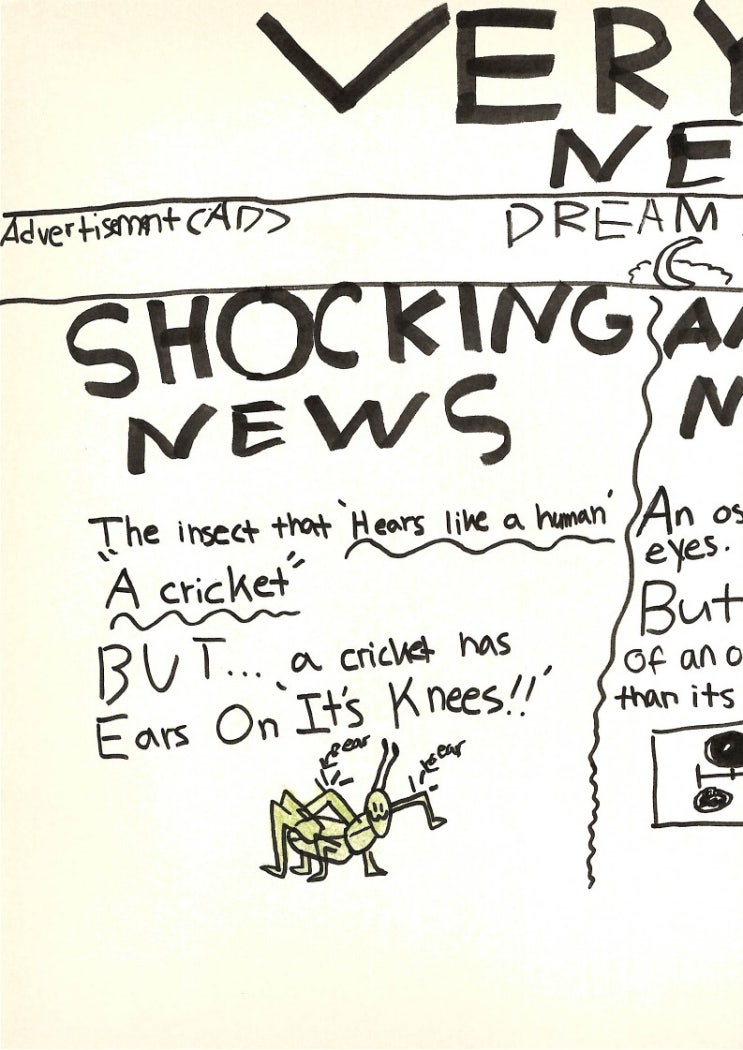 VERY
NE
Advertisemnt <AD>
DREAM
SHOCKING
NEWS
The insect that 'Hears like a human'
"A cricket"
BUT... a cricket has
Ears On 'It's Knees!!'
ear
ear
An os
eyes.
But
of an o
than its